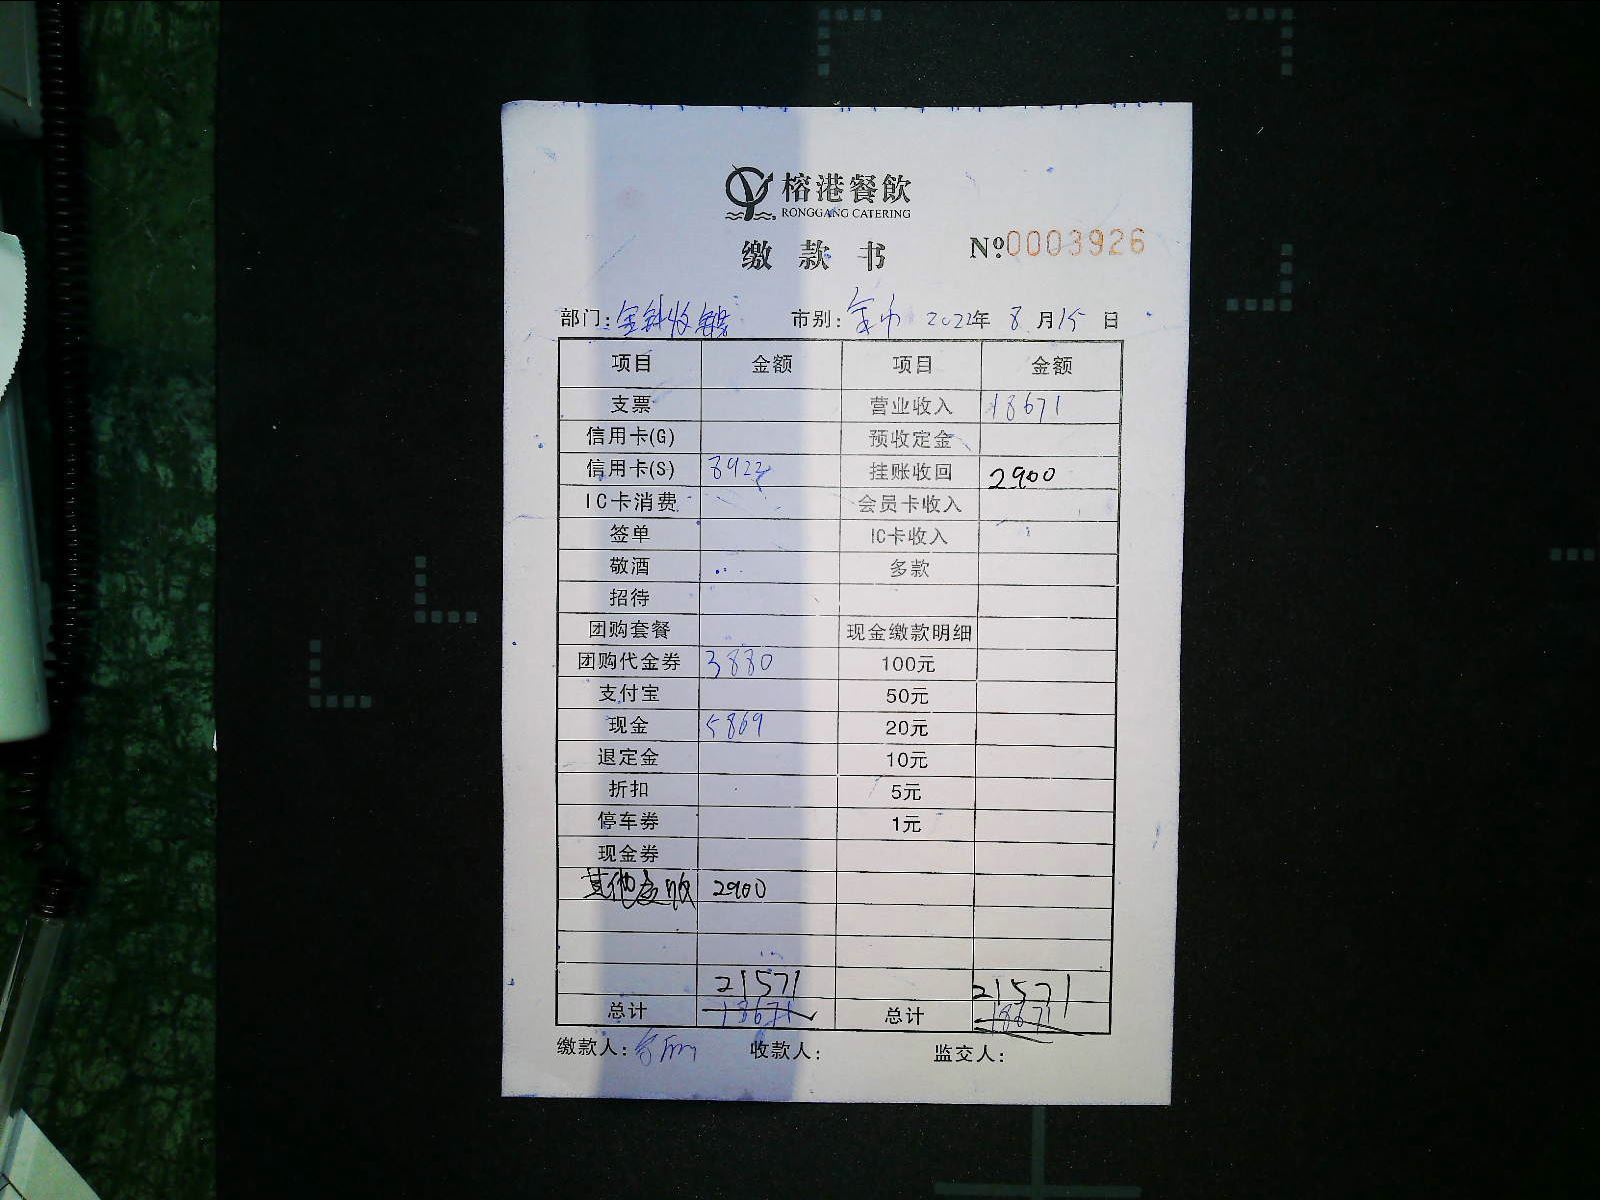 榕港餐飲
RONGGANG CATERING
缴款书 №:0003926
部门:金科收银 市别:全市 2022年8月15日
项目 金额 项目 金额
支票 营业收入 18671
信用卡(G) 预收定金
信用卡(S) 8922 挂账收回 2900
IC卡消费 会员卡收入
签单 IC卡收入
敬酒 多款
招待
团购套餐 现金缴款明细
团购代金券 3880 100元
支付宝 50元
现金 5869 20元
退定金 10元
折扣 5元
停车券 1元
现金券
其他应收 2900
21571 21571
总计 18671 总计 18671
缴款人: 收款人: 监交人: